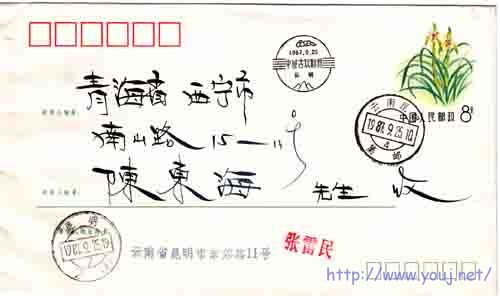 1987.9.25
昆明
中国人民邮政 8分
云南昆明
1987.9.25.10
4
集邮
青海省 西宁市
南山路 15-11号
陳東海 先生 收
昆明
1987.9.25.19
云南省昆明市东郊路11号
张雷民
http://www.youj.net/